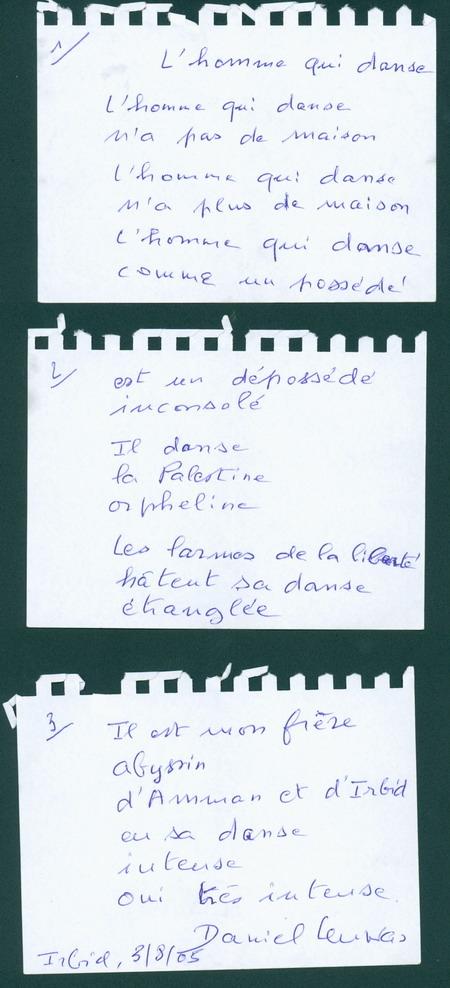 1/
L'homme qui danse
L'homme qui danse
n'a pas de maison
L'homme qui danse
n'a plus de maison
L'homme qui danse
comme un possédé
2/
est un dépossédé
inconsolé
Il danse
la Palestine
orpheline
Les larmes de la liberté
hâtent sa danse
étranglée
3/
Il est mon frère
abyssin
d'Amman et d'Irbid
en sa danse
intense
oui très intense.
Daniel
Irbid, 3/8/05